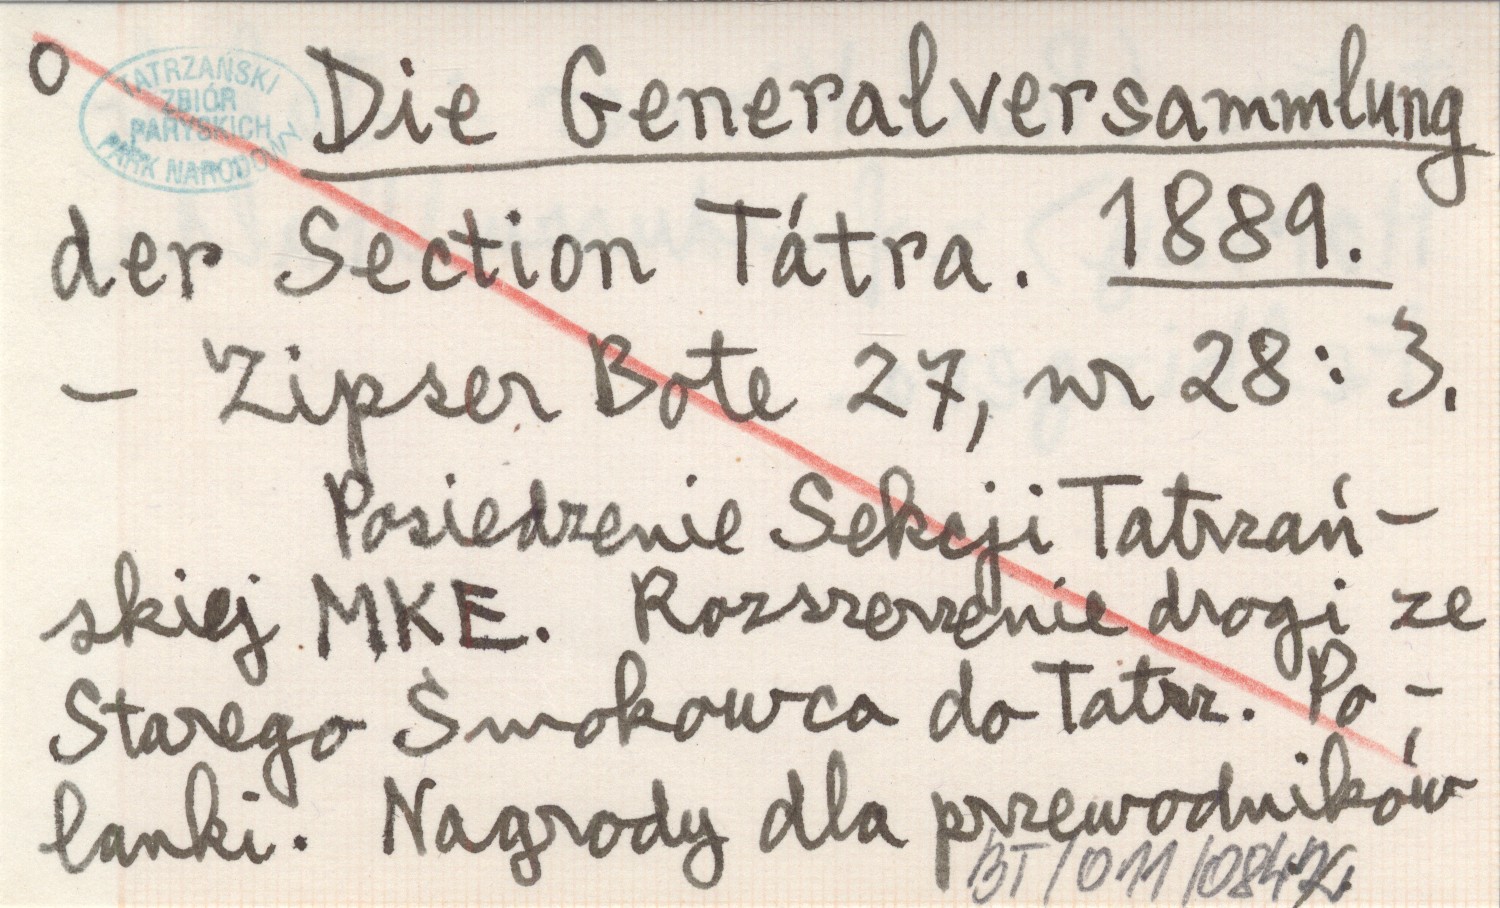 O
TATRZAŃSKI
ZBIÓR
PARYSKICH
PARK NARODOWY
Die Generalversammlung
der Section Tátra. 1889.
- Zipser Bote 27, nr 28: 3.
Posiedzenie Sekcji Tatrzań-
skiej MKE. Rozszerzenie drogi ze
Starego Smokowca do Tatrz. Po-
lanki. Nagrody dla przewodników
BT/011/0847